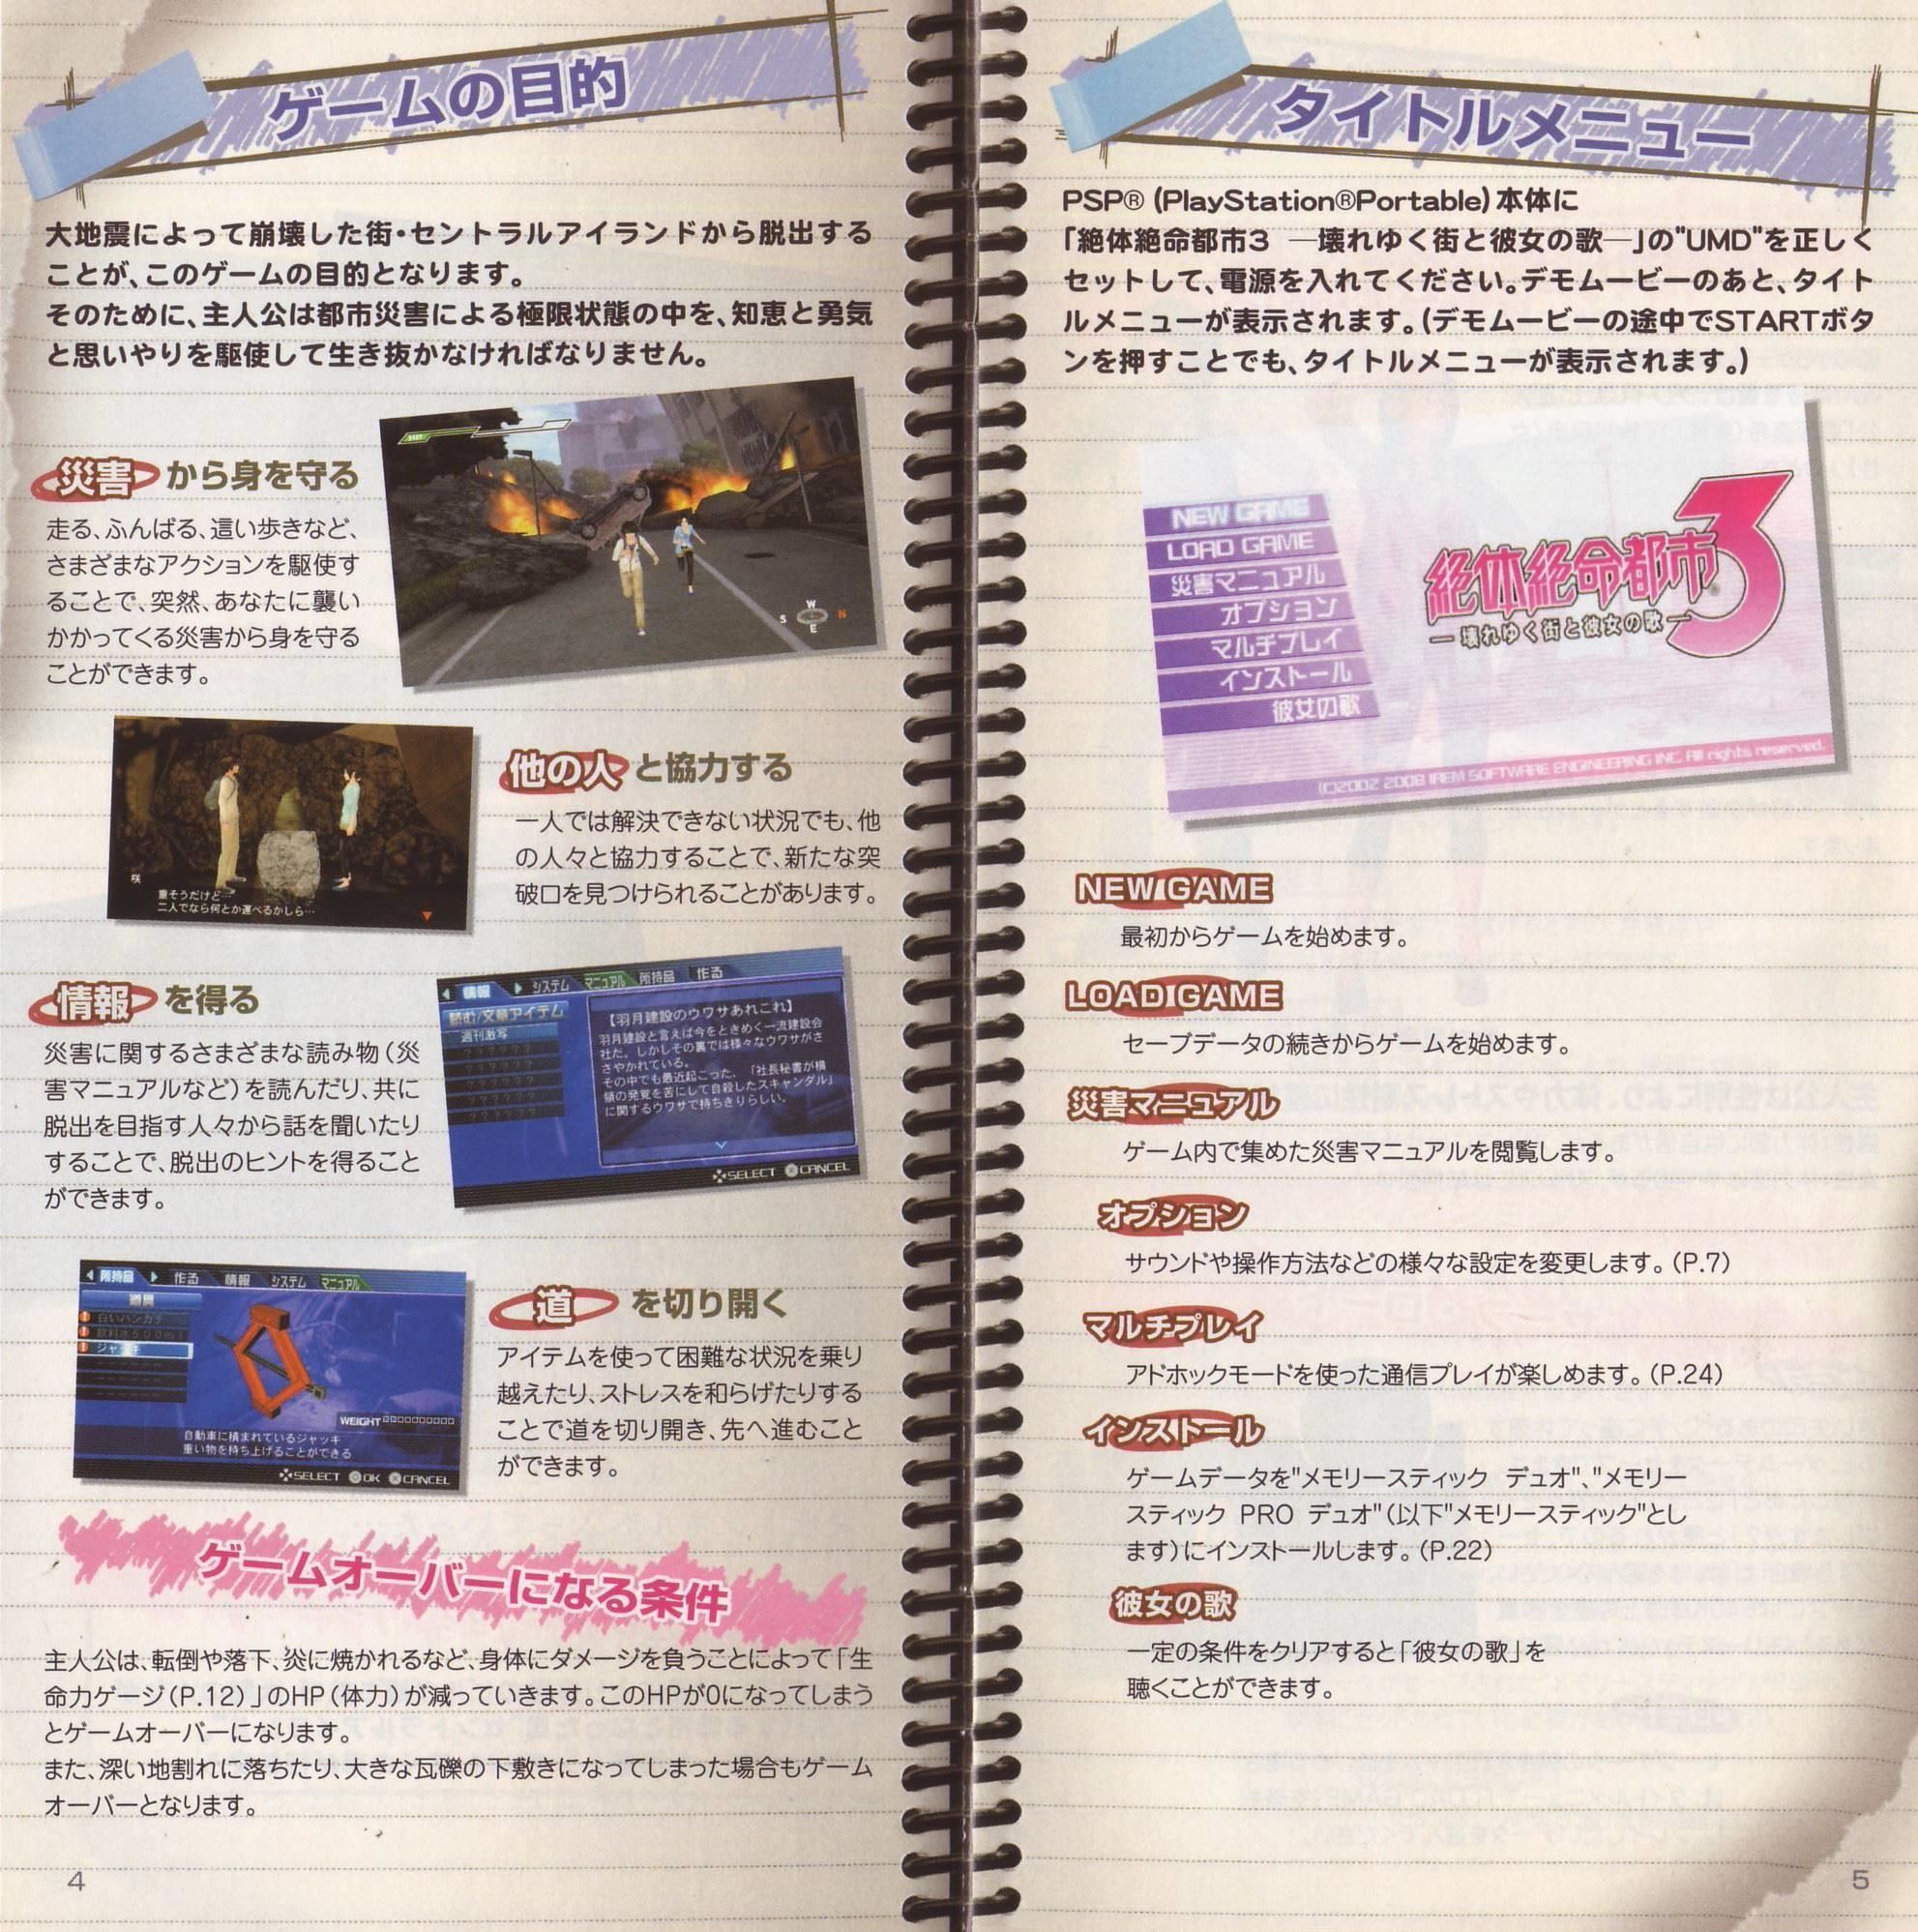 ゲームの目的
大地震によって崩壊した街・セントラルアイランドから脱出する
ことが、このゲームの目的となります。
そのために、主人公は都市災害による極限状態の中を、知恵と勇気
と思いやりを駆使して生き抜かなければなりません。
災害から身を守る
走る、ふんばる、這い歩きなど、
さまざまなアクションを駆使す
ることで、突然、あなたに襲い
かかってくる災害から身を守る
ことができます。
W
S N
E
他の人と協力する
一人では解決できない状況でも、他
の人々と協力することで、新たな突
破口を見つけられることがあります。
咲
重そうだけど…
二人でなら何とか運べるかしら…
情報を得る
災害に関するさまざまな読み物（災
害マニュアルなど）を読んだり、共に
脱出を目指す人々から話を聞いたり
することで、脱出のヒントを得ること
ができます。
情報 システム マニュアル 所持品 作る
読む/文章アイテム
週刊激写
??????
??????
??????
??????
??????
??????
【羽月建設のウワサあれこれ】
羽月建設と言えば今をときめく一流建設会
社だ。しかしその裏では様々なウワサがさ
さやかれている。
その中でも最近起こった、「社長秘書が横
領の発覚を苦にして自殺したスキャンダル」
に関するウワサで持ちきりらしい。
SELECT CANCEL
道を切り開く
アイテムを使って困難な状況を乗り
越えたり、ストレスを和らげたりする
ことで道を切り開き、先へ進むこと
ができます。
所持品 作る 情報 システム マニュアル
道具
白いハンカチ
飲料水500ml
ジャッキ
WEIGHT
自動車に積まれているジャッキ
重い物を持ち上げることができる
SELECT OK CANCEL
ゲームオーバーになる条件
主人公は、転倒や落下、炎に焼かれるなど、身体にダメージを負うことによって「生
命力ゲージ（P.12）」のHP（体力）が減っていきます。このHPが0になってしまう
とゲームオーバーになります。
また、深い地割れに落ちたり、大きな瓦礫の下敷きになってしまった場合もゲーム
オーバーとなります。
4
タイトルメニュー
PSP®（PlayStation®Portable）本体に
「絶体絶命都市3 ―壊れゆく街と彼女の歌―」の"UMD"を正しく
セットして、電源を入れてください。デモムービーのあと、タイト
ルメニューが表示されます。（デモムービーの途中でSTARTボタ
ンを押すことでも、タイトルメニューが表示されます。）
NEW GAME
LOAD GAME
災害マニュアル
オプション
マルチプレイ
インストール
彼女の歌
絶体絶命都市3®
―壊れゆく街と彼女の歌―
(C)2002 2008 IREM SOFTWARE ENGINEERING INC. All rights reserved.
NEW GAME
最初からゲームを始めます。
LOAD GAME
セーブデータの続きからゲームを始めます。
災害マニュアル
ゲーム内で集めた災害マニュアルを閲覧します。
オプション
サウンドや操作方法などの様々な設定を変更します。（P.7）
マルチプレイ
アドホックモードを使った通信プレイが楽しめます。（P.24）
インストール
ゲームデータを"メモリースティック デュオ"、"メモリー
スティック PRO デュオ"（以下"メモリースティック"とし
ます）にインストールします。（P.22）
彼女の歌
一定の条件をクリアすると「彼女の歌」を
聴くことができます。
5